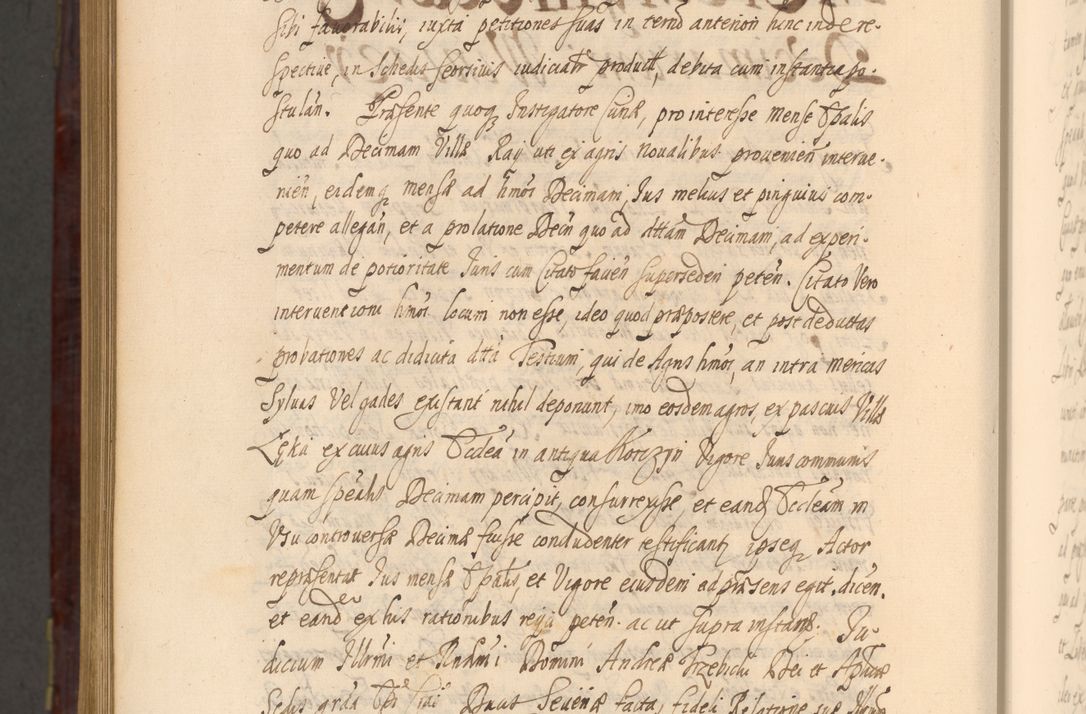 sibi favorabilis, iuxta petitiones suas in termō anteriori hinc inde re-
spective, in Schedis seorsivis iudicialr̄ product̄, debita cum instantia po-
stulan̄. Præsente quoq; Instigatore Curiæ, pro interesse mensæ Ep̄alis
quo ad Decimam Villæ Ray uti ex agris Novalibus provenien̄ interve-
nien̄, eidemq; mensæ ad hmōi Decimam, Ius melius et pinguius com-
petere allegan̄, et a prolatione Decrī quo ad dictam Decimam, ad experi-
mentum de potioritate Iuris cum Citato facien̄ supersederi peten̄. Citato Vero
interventioni hmōi locum non esse, ideo quod præpostere, et post deductas
probationes ac didicita dictā Testium, qui de Agris hmōi, an intra mericas
Sylvas Vel gades existant nihil deponunt, imo eosdem agros, ex pascuis Villæ
Lęka ex cuius agris Eccleā in antiqua Korczyn Vigore Iuris communis
quam sp̄ealis Decimam percipit, consurrexisse, et eand; Eccleam in
Usu controversæ Decimæ fuisse concludenter testificant, ipseq; Actor
repræsentat Ius mensæ Ep̄alis, et Vigore eiusdem ad præsens egit, dicen̄,
et eand ex his rationibus reijci peten̄. ac ut supra instan̄. Iu-
dicium Illr̄mi et Rndm̄i Domini Andreæ Trzebicki Dei et Aplicæ
Sedis gr̄ā Ep̄i Ducis Severiæ facta, fideli Relatione suæ